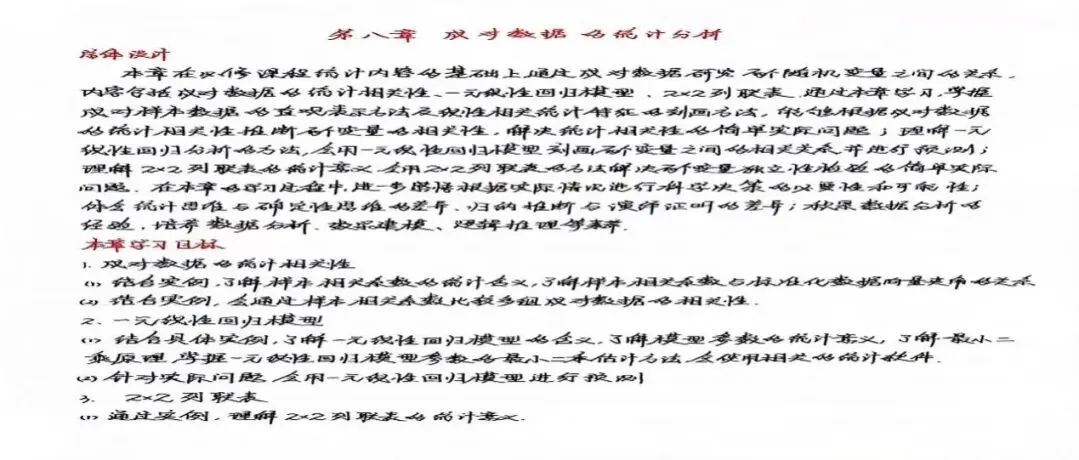 第八章 成对数据的统计分析
总体设计
本章在必修课程统计内容的基础上通过成对数据研究两个随机变量之间的关系.
内容包括成对数据的统计相关性、一元线性回归模型、2×2列联表.通过本章学习,掌握
成对样本数据的直观表示方法及线性相关统计特征的刻画方法,能够根据成对数据
的统计相关性推断两个变量的相关性,解决统计相关性的简单实际问题;理解一元
线性回归分析的方法,会用一元线性回归模型刻画两个变量之间的相关关系,并进行预测;
理解2×2列联表的统计意义,会用2×2列联表的方法解决两个变量独立性检验的简单实际
问题.在本章的学习过程中,进一步感悟根据实际情况进行科学决策的必要性和可能性;
体会统计思维与确定性思维的差异、归纳推断与演绎证明的差异;积累数据分析的
经验,培养数据分析、数学建模、逻辑推理等素养.
本章学习目标
1. 成对数据的统计相关性
(1) 结合实例,了解样本相关系数的统计含义,了解样本相关系数与标准化数据向量夹角的关系
(2) 结合实例,会通过样本相关系数比较多组成对数据的相关性.
2. 一元线性回归模型
(1) 结合具体实例,了解一元线性回归模型的含义,了解模型参数的统计意义,了解最小二
乘原理,掌握一元线性回归模型参数的最小二乘估计方法,会使用相关的统计软件.
(2) 针对实际问题,会用一元线性回归模型进行预测
3. 2×2列联表
(1) 通过实例,理解2×2列联表的统计意义.